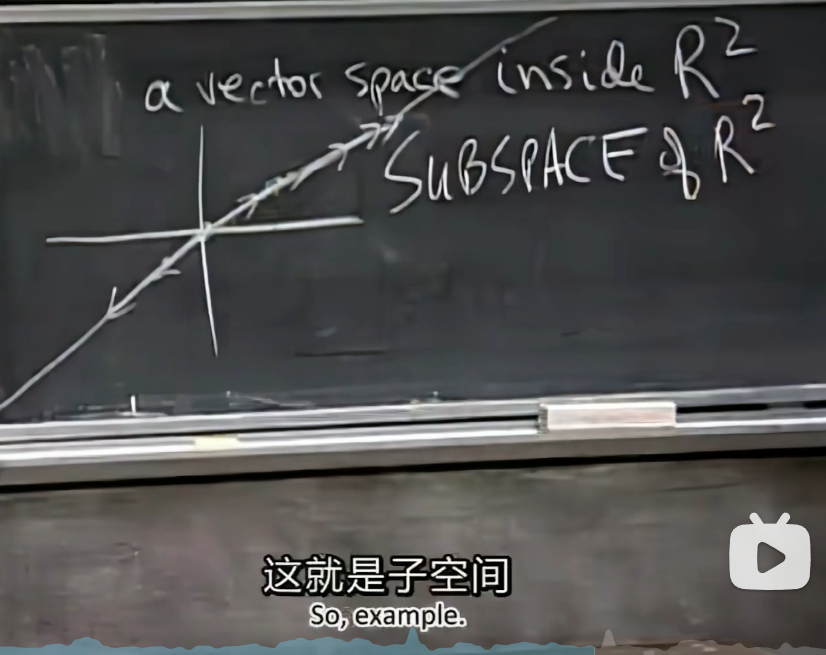 a vector space inside R²
SUBSPACE of R²
这就是子空间
So, example.